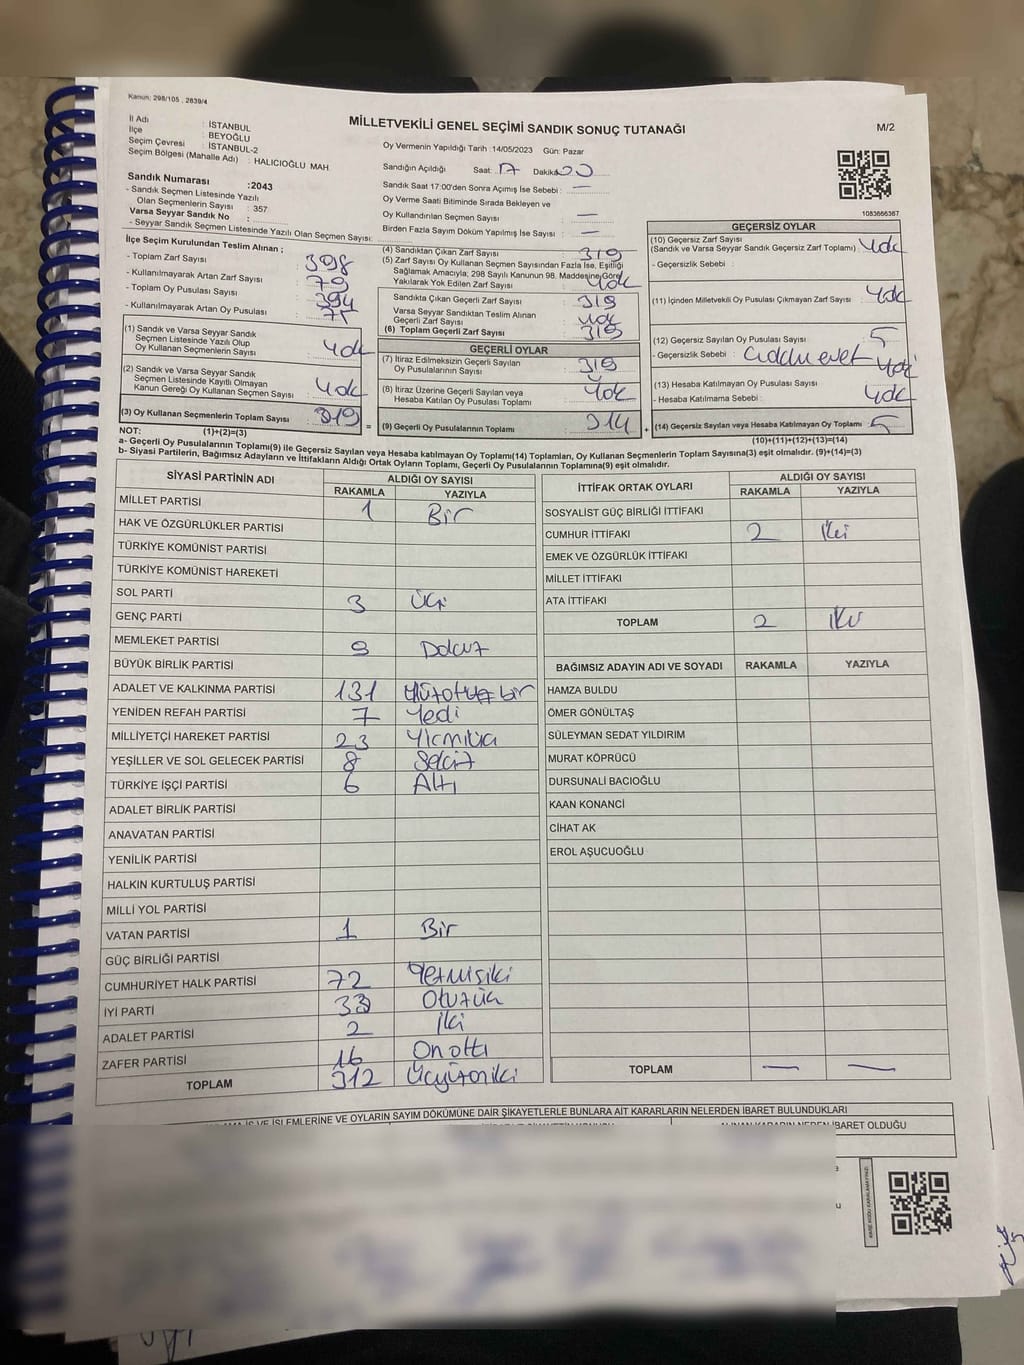 Kanun: 298/105 , 2839/4
MİLLETVEKİLİ GENEL SEÇİMİ SANDIK SONUÇ TUTANAĞI
M/2
İl Adı : İSTANBUL
İlçe : BEYOĞLU
Seçim Çevresi : İSTANBUL-2
Seçim Bölgesi (Mahalle Adı) : HALICIOĞLU MAH.
Sandık Numarası :2043
- Sandık Seçmen Listesinde Yazılı
Olan Seçmenlerin Sayısı : 357
Varsa Seyyar Sandık No :
- Seyyar Sandık Seçmen Listesinde Yazılı Olan Seçmen Sayısı:
Oy Vermenin Yapıldığı Tarih :14/05/2023 Gün: Pazar
Sandığın Açıldığı Saat : 17 Dakika: 00
Sandık Saat 17:00'den Sonra Açımış İse Sebebi : —
Oy Verme Saati Bitiminde Sırada Bekleyen ve
Oy Kullandırılan Seçmen Sayısı : —
Birden Fazla Sayım Döküm Yapılmış İse Sayısı : —
1083666367
İlçe Seçim Kurulundan Teslim Alınan ;
- Toplam Zarf Sayısı : 398
- Kullanılmayarak Artan Zarf Sayısı : 79
- Toplam Oy Pusulası Sayısı : 394
- Kullanılmayarak Artan Oy Pusulası : 75
(1) Sandık ve Varsa Seyyar Sandık
Seçmen Listesinde Yazılı Olup
Oy Kullanan Seçmenlerin Sayısı : Yok
(2) Sandık ve Varsa Seyyar Sandık
Seçmen Listesinde Kayıtlı Olmayan
Kanun Gereği Oy Kullanan Seçmen Sayısı : Yok
(3) Oy Kullanan Seçmenlerin Toplam Sayısı : 319
(1)+(2)=(3)
(4) Sandıktan Çıkan Zarf Sayısı : 319
(5) Zarf Sayısı Oy Kullanan Seçmen Sayısından Fazla İse, Eşitliği
Sağlamak Amacıyla; 298 Sayılı Kanunun 98. Maddesine Göre
Yakılarak Yok Edilen Zarf Sayısı : Yok
Sandıkta Çıkan Geçerli Zarf Sayısı : 319
Varsa Seyyar Sandıktan Teslim Alınan
Geçerli Zarf Sayısı : Yok
(6) Toplam Geçerli Zarf Sayısı : 319
GEÇERLİ OYLAR
(7) İtiraz Edilmeksizin Geçerli Sayılan
Oy Pusulalarının Sayısı : 319
(8) İtiraz Üzerine Geçerli Sayılan veya
Hesaba Katılan Oy Pusulası Toplamı : Yok
= (9) Geçerli Oy Pusulalarının Toplamı : 314
GEÇERSİZ OYLAR
(10) Geçersiz Zarf Sayısı
(Sandık ve Varsa Seyyar Sandık Geçersiz Zarf Toplamı) : Yok
- Geçersizlik Sebebi :
(11) İçinden Milletvekili Oy Pusulası Çıkmayan Zarf Sayısı : Yok
(12) Geçersiz Sayılan Oy Pusulası Sayısı : 5
- Geçersizlik Sebebi : evet
(13) Hesaba Katılmayan Oy Pusulası Sayısı : Yok
- Hesaba Katılmama Sebebi : Yok
+ (14) Geçersiz Sayılan veya Hesaba Katılmayan Oy Toplamı : 5
(10)+(11)+(12)+(13)=(14)
NOT:
a- Geçerli Oy Pusulalarının Toplamı(9) ile Geçersiz Sayılan veya Hesaba katılmayan Oy Toplamı(14) Toplamları, Oy Kullanan Seçmenlerin Toplam Sayısına(3) eşit olmalıdır. (9)+(14)=(3)
b- Siyasi Partilerin, Bağımsız Adayların ve İttifakların Aldığı Ortak Oyların Toplamı, Geçerli Oy Pusulalarının Toplamına(9) eşit olmalıdır.
SİYASİ PARTİNİN ADI ALDIĞI OY SAYISI
RAKAMLA YAZIYLA
MİLLET PARTİSİ 1 Bir
HAK VE ÖZGÜRLÜKLER PARTİSİ
TÜRKİYE KOMÜNİST PARTİSİ
TÜRKİYE KOMÜNİST HAREKETİ
SOL PARTİ 3 Üç
GENÇ PARTİ
MEMLEKET PARTİSİ 9 Dokuz
BÜYÜK BİRLİK PARTİSİ
ADALET VE KALKINMA PARTİSİ 131 Yüzotuzbir
YENİDEN REFAH PARTİSİ 7 Yedi
MİLLİYETÇİ HAREKET PARTİSİ 23 Yirmiüç
YEŞİLLER VE SOL GELECEK PARTİSİ 8 Sekiz
TÜRKİYE İŞÇİ PARTİSİ 6 Altı
ADALET BİRLİK PARTİSİ
ANAVATAN PARTİSİ
YENİLİK PARTİSİ
HALKIN KURTULUŞ PARTİSİ
MİLLİ YOL PARTİSİ
VATAN PARTİSİ 1 Bir
GÜÇ BİRLİĞİ PARTİSİ
CUMHURİYET HALK PARTİSİ 72 Yetmişiki
İYİ PARTİ 33 Otuzüç
ADALET PARTİSİ 2 İki
ZAFER PARTİSİ 16 Onaltı
TOPLAM 312 Üçyüzoniki
İTTİFAK ORTAK OYLARI ALDIĞI OY SAYISI
RAKAMLA YAZIYLA
SOSYALİST GÜÇ BİRLİĞİ İTTİFAKI
CUMHUR İTTİFAKI 2 İki
EMEK VE ÖZGÜRLÜK İTTİFAKI
MİLLET İTTİFAKI
ATA İTTİFAKI
TOPLAM 2 İki
BAĞIMSIZ ADAYIN ADI VE SOYADI RAKAMLA YAZIYLA
HAMZA BULDU
ÖMER GÖNÜLTAŞ
SÜLEYMAN SEDAT YILDIRIM
MURAT KÖPRÜCÜ
DURSUNALİ BACIOĞLU
KAAN KONANCİ
CİHAT AK
EROL AŞUCUOĞLU
TOPLAM — —
İŞLEMLERİNE VE OYLARIN SAYIM DÖKÜMÜNE DAİR ŞİKAYETLERLE BUNLARA AİT KARARLARIN NELERDEN İBARET BULUNDUKLARI
ALINAN KARARIN NEDEN İBARET OLDUĞU